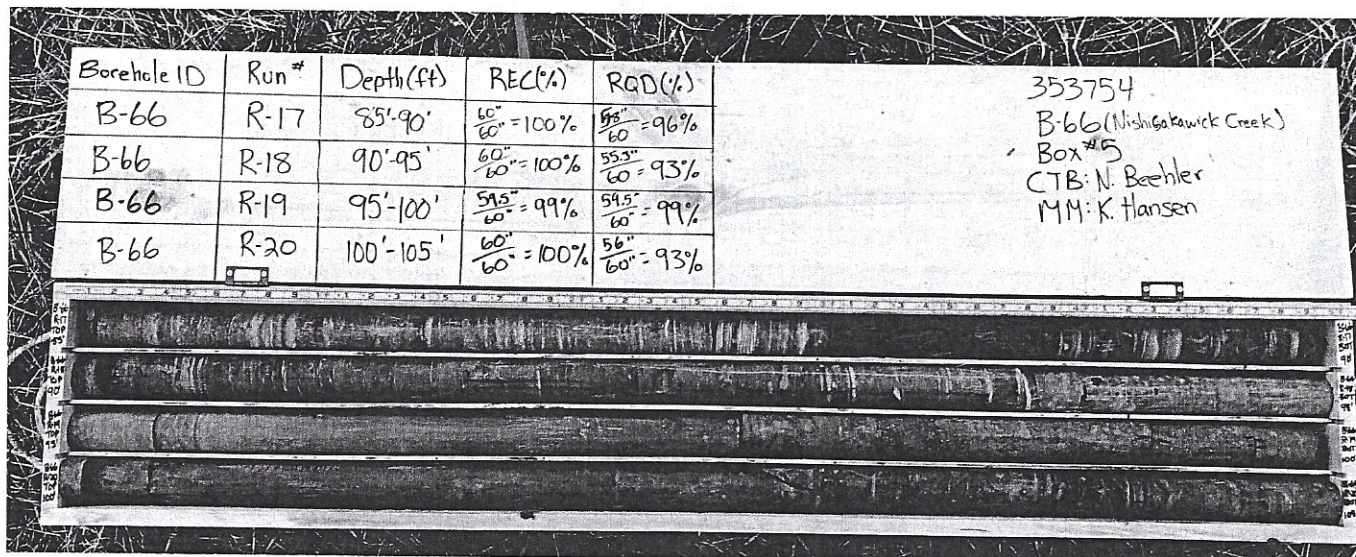 Borehole ID Run # Depth(ft) REC(%) RQD(%)
B-66 R-17 85'-90' 60"/60" = 100% 58"/60 = 96%
B-66 R-18 90'-95' 60"/60" = 100% 55.5"/60 = 93%
B-66 R-19 95'-100' 59.5"/60" = 99% 59.5"/60" = 99%
B-66 R-20 100'-105' 60"/60" = 100% 56"/60" = 93%
353754
B-66 (Nishisakawick Creek)
Box #5
CTB: N. Beehler
MM: K. Hansen